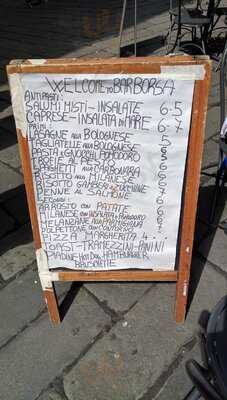 WELCOME TO BAR BORSA
ANTIPASTI:
SALUMI MISTI - INSALATE 6-5
CAPRESE - INSALATA DI MARE 6-7
PRIMI:
LASAGNE ALLA BOLOGNESE
TAGLIATELLE ALLA BOLOGNESE
PASTA O GNOCCHI POMODORO
TROFIE AL PESTO
SPAGHETTI ALLA CARBONARA
RISOTTO ALLA MILANESE
RISOTTO GAMBERI ZUCCHINE
PENNE AL SALMONE
SECONDI:
ARROSTO CON PATATE
MILANESE CON INSALATA POMODORO
MELANZANE ALLA PARMIGIANA
POLPETTONE CON CONTORNO
PIZZA MARGHERITA 4
TOAST - TRAMEZZINI - PANINI
PIADINE HOT DOG HAMBURGER
BRUSCHETTE